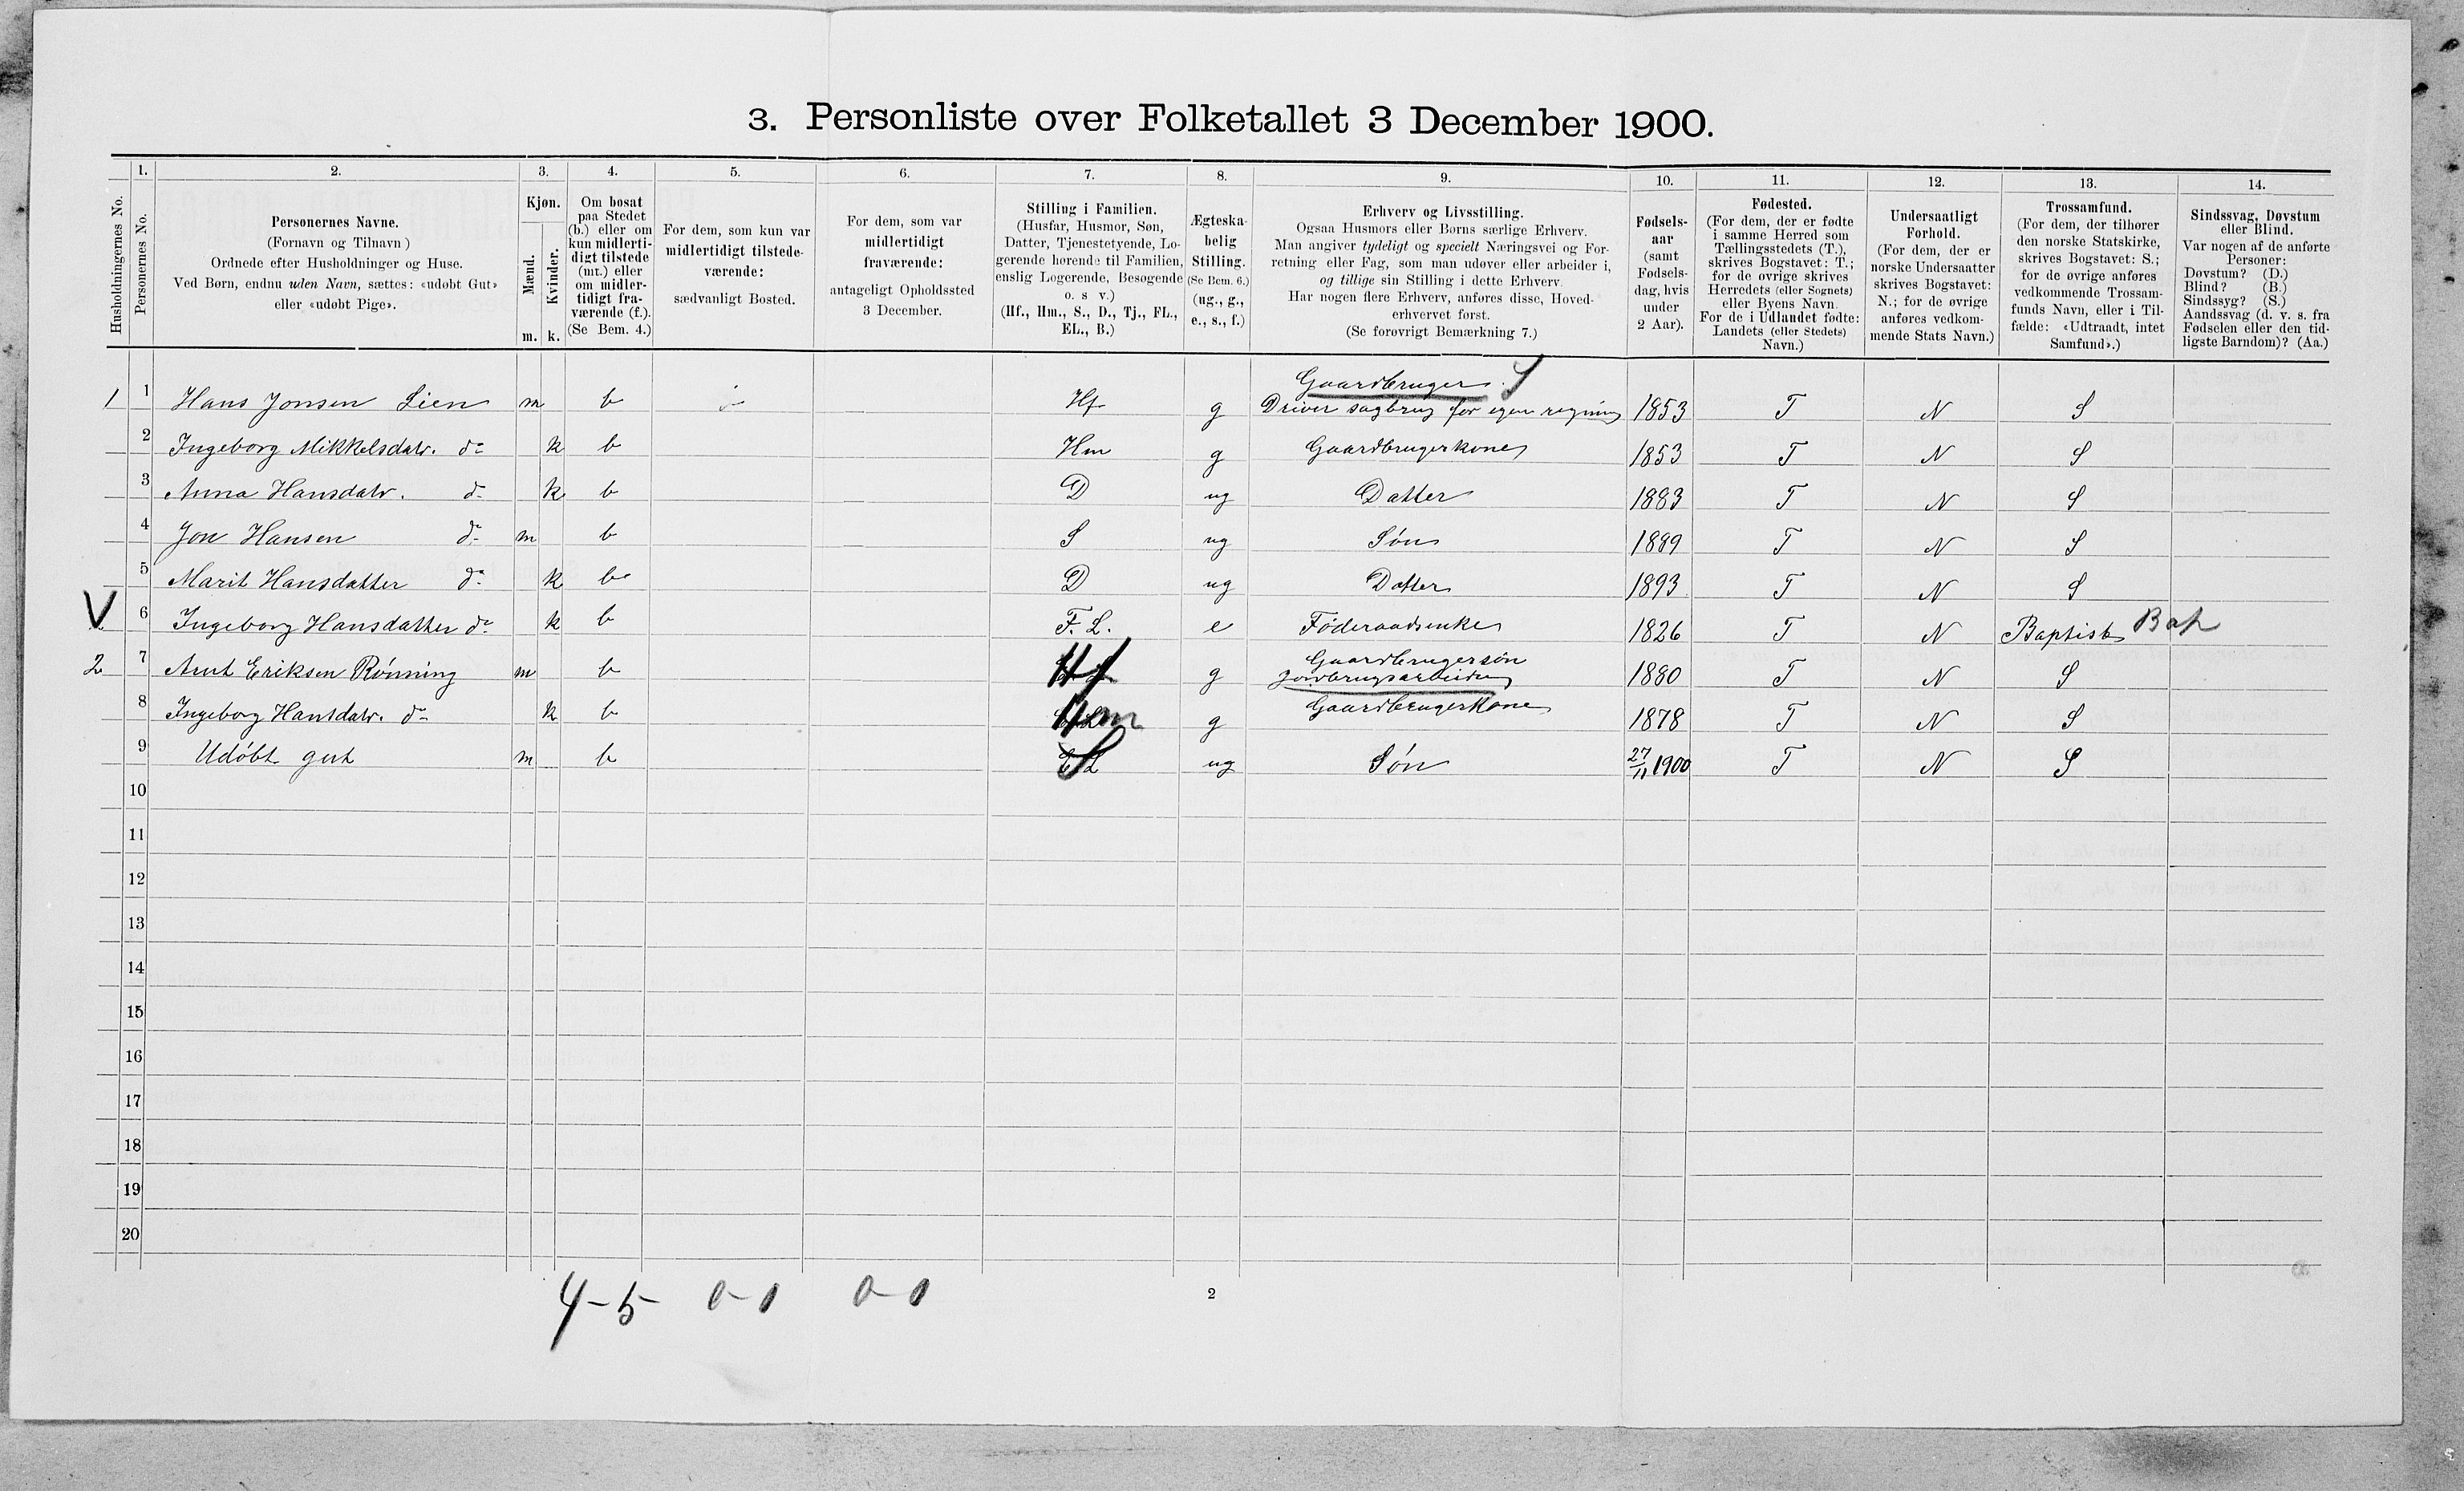 3. Personliste over Folketallet 3 December 1900.
1. 2. 3. 4. 5. 6. 7. 8. 9. 10. 11. 12. 13. 14.
Husholdningernes No.
Personernes No.
Personernes Navne.
(Fornavn og Tilnavn)
Ordnede efter Husholdninger og Huse.
Ved Børn, endnu uden Navn, sættes: «udøbt Gut»
eller «udøbt Pige».
Kjøn.
Mænd.
Kvinder.
m. k.
Om bosat
paa Stedet
(b.) eller om
kun midlerti-
digt tilstede
(mt.) eller
om midler-
tidigt fra-
værende (f.).
(Se Bem. 4.)
For dem, som kun var
midlertidigt tilstede-
værende:
sædvanligt Bosted.
For dem, som var
midlertidigt
fraværende:
antageligt Opholdssted
3 December.
Stilling i Familien.
(Husfar, Husmor, Søn,
Datter, Tjenestetyende, Lo-
gerende hørende til Familien,
enslig Logerende, Besøgende
o. s v.)
(Hf., Hm., S., D., Tj., FL.,
EL., B.)
Ægteska-
belig
Stilling.
(Se Bem. 6.)
(ug., g.,
e., s., f.)
Erhverv og Livsstilling.
Ogsaa Husmors eller Børns særlige Erhverv.
Man angiver tydeligt og specielt Næringsvei og For-
retning eller Fag, som man udøver eller arbeider i,
og tillige sin Stilling i dette Erhverv.
Har nogen flere Erhverv, anføres disse, Hoved-
erhvervet først.
(Se forøvrigt Bemærkning 7.)
Fødsels-
aar
(samt
Fødsels-
dag, hvis
under
2 Aar).
Fødested.
(For dem, der er fødte
i samme Herred som
Tællingsstedets (T.),
skrives Bogstavet: T.;
for de øvrige skrives
Herredets (eller Sognets)
eller Byens Navn.
For de i Udlandet fødte:
Landets (eller Stedets)
Navn.)
Undersaatligt
Forhold.
(For dem, der er
norske Undersaatter
skrives Bogstavet:
N.; for de øvrige
anføres vedkom-
mende Stats Navn.)
Trossamfund.
(For dem, der tilhører
den norske Statskirke,
skrives Bogstavet: S.;
for de øvrige anføres
vedkommende Trossam-
funds Navn, eller i Til-
fælde: «Udtraadt, intet
Samfund».)
Sindssvag, Døvstum
eller Blind.
Var nogen af de anførte
Personer:
Døvstum? (D.)
Blind? (B.)
Sindssyg? (S.)
Aandssvag (d. v. s. fra
Fødselen eller den tid-
ligste Barndom)? (Aa.)
Gaardbruger. S
1 1 Hans Jonsen Lien m b Hf g Driver sagbrug for egen regning 1853 T N S
2 Ingeborg Mikkelsdatr. do k b Hm g Gaardbrugerkone 1853 T N S
3 Anna Hansdatr. do k b D ug Datter 1883 T N S
4 Jon Hansen do m b S ug Søn 1889 T N S
5 Marit Hansdatter do k b D ug Datter 1893 T N S
V 6 Ingeborg Hansdatter do k b F. L. e Føderaadsenke 1826 T N Baptist Bap
Gaardbrugersøn
2 7 Arnt Eriksen Rönning m b Hf g Jordbrugsarbeider 1880 T N S
8 Ingeborg Hansdatr. do k b Hm g Gaardbrugerkone 1878 T N S
9 Udöbt gut m b S ug Søn 27/11 1900 T N S
10
11
12
13
14
15
16
17
18
19
20
4-5 0-0 0-0
2